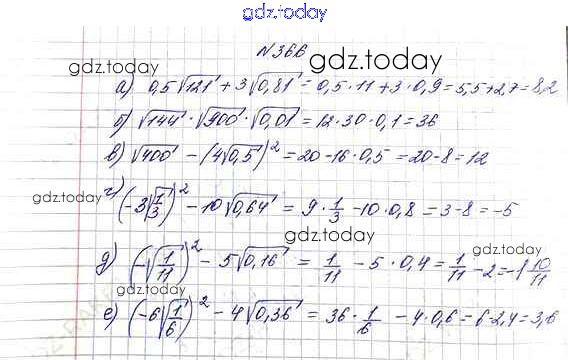 gdz.today
№366
gdz.today gdz.today
а) 0,5√121 + 3√0,81 = 0,5·11 + 3·0,9 = 5,5+2,7 = 8,2
б) √144 · √900 · √0,01 = 12·30·0,1 = 36
в) √400 - (4√0,5)² = 20 - 16·0,5 = 20 - 8 = 12
г) (-3√1/3)² - 10√0,64 = 9·1/3 - 10·0,8 = 3 - 8 = -5
gdz.today gdz.today
д) (-√1/11)² - 5√0,16 = 1/11 - 5·0,4 = 1/11 - 2 = -1 10/11
gdz.today gdz.today
е) (-6√1/6)² - 4√0,36 = 36·1/6 - 4·0,6 = 6-2,4 = 3,6